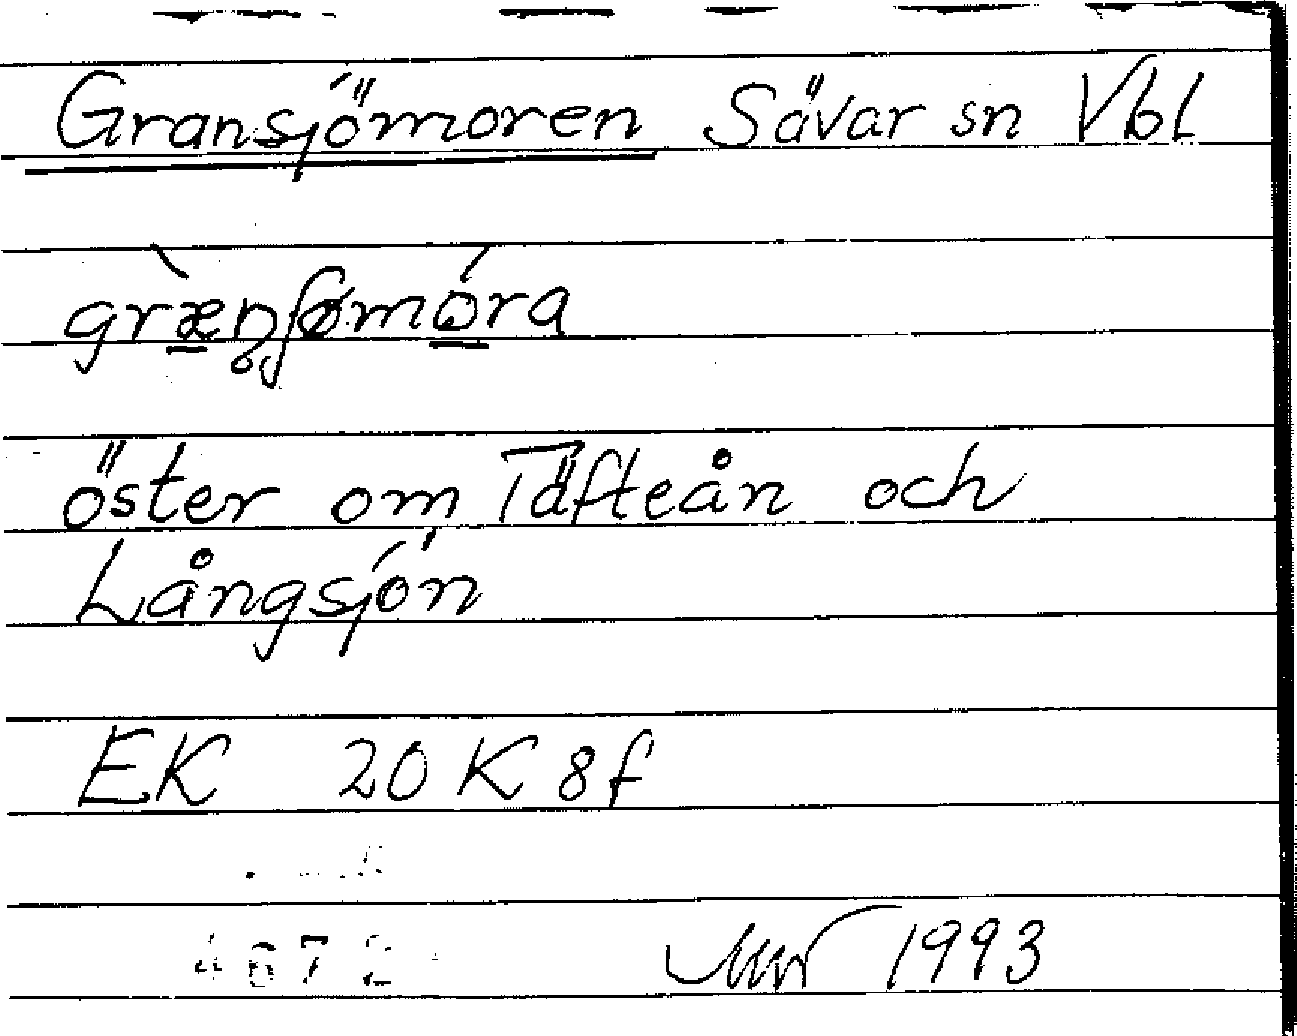 Gransjömoren Sävar sn Vbl
græ̀nʃømóra
öster om Täfteån och
Långsjön
EK 20 K 8f
4672
1993